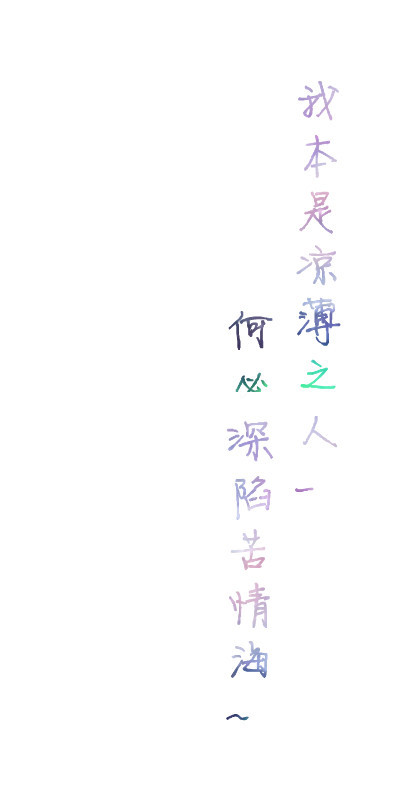 我本是凉薄之人-
何必深陷苦情海~